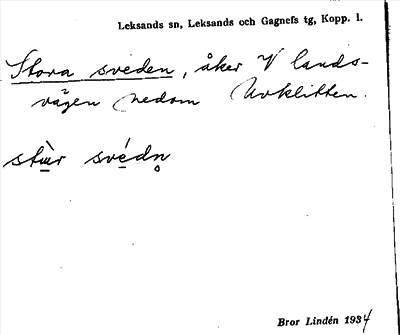 Leksands sn, Leksands och Gagnefs tg, Kopp. l.
Stora sveden, åker V lands-
vägen nedom Åvklitten.
stùr svédn̥
Bror Lindén 1934